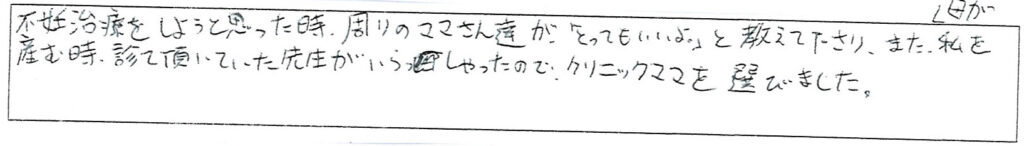 不妊治療をしようと思った時、周りのママさん達が、「とってもいいよ。」と教えて下さり、また、私を
母が
産む時、診て頂いていた先生がいらっしゃったので、クリニックママを選びました。